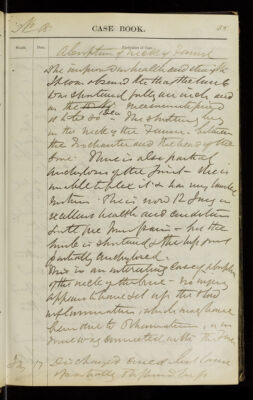 CASE BOOK.
Absorption of neck of femur
She improved in health and strength
It was observed that the limb
was shortened fully an inch and
in the measurement proved
to be so. The shortening being
in the neck of the Femur between
the Trochanter and the head of the
bone. There is also partial
anchylosis of the joint - she is
unable to flex it & has very limited
motion. She is now in
excellent health and condition
quite free from pain - but the
limb is shortened & the hip joint
partially anchylosed.
This is an interesting case of absorption
of the neck of the bone - no injury
appears to have set up the
inflammation, which may have
been due to Rheumatism, or in
some way connected with the
Discharged